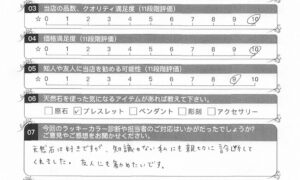 03 当店の品数、クオリティ満足度（11段階評価）
☆ 0 1 2 3 4 5 6 7 8 9 10
04 価格満足度（11段階評価）
☆ 0 1 2 3 4 5 6 7 8 9 10
05 知人や友人に当店を勧める可能性（11段階評価）
☆ 0 1 2 3 4 5 6 7 8 9 10
06 天然石を使った気になるアイテムがあれば教えて下さい。
□原石 ☑ブレスレット □ペンダント □彫刻 □アクセサリー
07 今回のラッキーカラー診断や担当者のご対応はいかがだったでしょうか？
ご意見やご感想をお聞かせください。
天然石は好きですが、知識のない私にも親切に説明をして
くれました。友人にも勧めたいです。